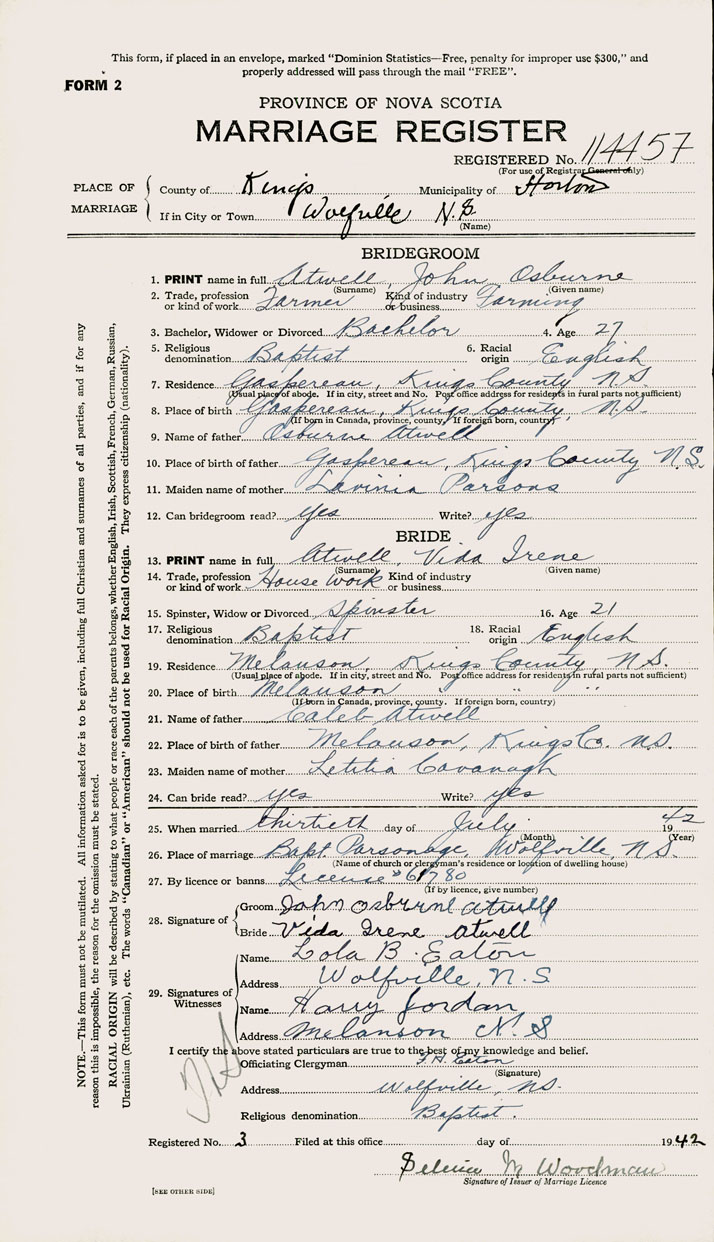 This form, if placed in an envelope, marked "Dominion Statistics—Free, penalty for improper use $300," and
properly addressed will pass through the mail "FREE".
FORM 2
PROVINCE OF NOVA SCOTIA
MARRIAGE REGISTER
REGISTERED No. 114457
(For use of Registrar General only)
PLACE OF MARRIAGE
County of Kings Municipality of Horton
If in City or Town Wolfville N.S.
(Name)
BRIDEGROOM
1. PRINT name in full Atwell, John Osburne
(Surname) (Given name)
2. Trade, profession or kind of work Farmer Kind of industry or business Farming
3. Bachelor, Widower or Divorced Bachelor 4. Age 27
5. Religious denomination Baptist 6. Racial origin English
7. Residence Gaspereau, Kings County N.S.
(Usual place of abode. If in city, street and No. Post office address for residents in rural parts not sufficient)
8. Place of birth Gaspereau, Kings County, N.S.
(If born in Canada, province, county. If foreign born, country)
9. Name of father Osburne Atwell
10. Place of birth of father Gaspereau, Kings County N.S.
11. Maiden name of mother Lavinia Parsons
12. Can bridegroom read? yes Write? yes
BRIDE
13. PRINT name in full Atwell, Vida Irene
(Surname) (Given name)
14. Trade, profession or kind of work House Work Kind of industry or business
15. Spinster, Widow or Divorced Spinster 16. Age 21
17. Religious denomination Baptist 18. Racial origin English
19. Residence Melanson, Kings County, N.S.
(Usual place of abode. If in city, street and No. Post office address for residents in rural parts not sufficient)
20. Place of birth Melanson " "
(If born in Canada, province, county. If foreign born, country)
21. Name of father Caleb Atwell
22. Place of birth of father Melanson, Kings Co. N.S.
23. Maiden name of mother Letitia Cavanagh
24. Can bride read? yes Write? yes
25. When married thirtieth day of July 1942
(Month) (Year)
26. Place of marriage Bapt Parsonage, Wolfville, N.S.
(Name of church or clergyman's residence or location of dwelling house)
27. By licence or banns License # 61780
(If by licence, give number)
28. Signature of
Groom John Osburne Atwell
Bride Vida Irene Atwell
29. Signatures of Witnesses
Name Lola B. Eaton
Address Wolfville, N.S.
Name Harry Jordan
Address Melanson N.S
I certify the above stated particulars are true to the best of my knowledge and belief.
Officiating Clergyman Eaton
(Signature)
Address Wolfville, N.S.
Religious denomination Baptist.
Registered No. 3 Filed at this office day of 1942
M Woodman
Signature of Issuer of Marriage Licence
[SEE OTHER SIDE]
NOTE.—This form must not be mutilated. All information asked for is to be given, including full Christian and surnames of all parties, and if for any
reason this is impossible, the reason for the omission must be stated.
RACIAL ORIGIN will be described by stating to what people or race each of the parents belongs, whether English, Irish, Scottish, French, German, Russian,
Ukrainian (Ruthenian), etc. The words "Canadian" or "American" should not be used for Racial Origin. They express citizenship (nationality).